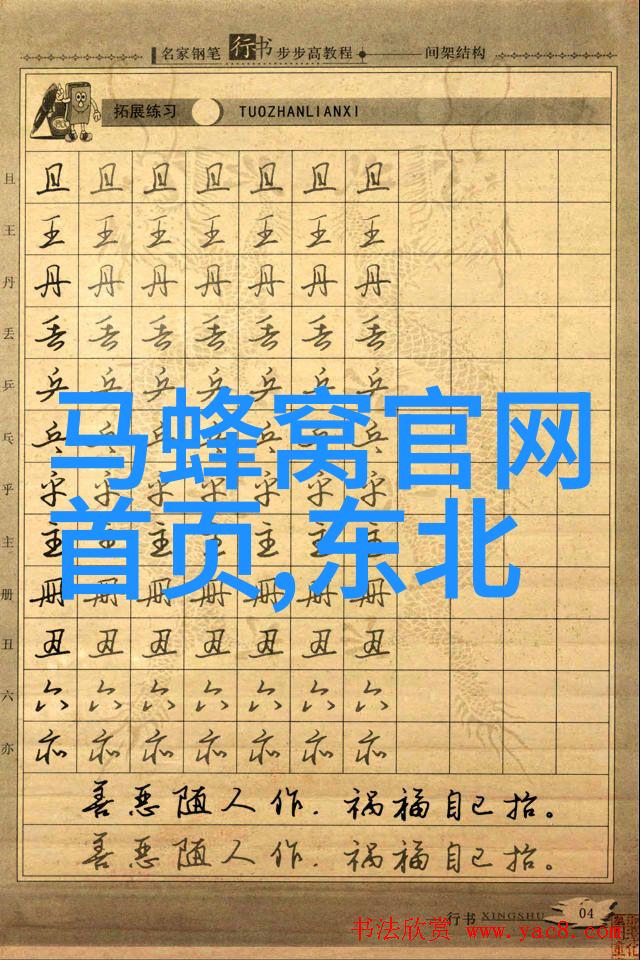 名家钢笔行书步步高教程 间架结构
拓展练习 TUOZHANLIANXI
且 且 且 且 且 且 且 且
王 王 王 王 王 王 王 王
丹 丹 丹 丹 丹 丹 丹 丹
丢 丢 丢 丢 丢 丢 丢 丢
乒 乒 乒 乒 乒 乒 乒 乒
乓 乓 乓 乓 乓 乓 乓 乓
马蜂窝官网
乎 乎 乎 乎 乎 乎 乎 乎
主 主 主 主 主 主 主 主
首页,东北
册 册 册 册 册 册 册 册
丑 丑 丑 丑 丑 丑 丑 丑
六 六 六 六 六 六 六 六
亦 亦 亦 亦 亦 亦 亦 亦
善恶随人作.祸福自己招。
善恶随人作.祸福自己招。
行书 XINGSHU 04
书法欣赏 www.yac8.com